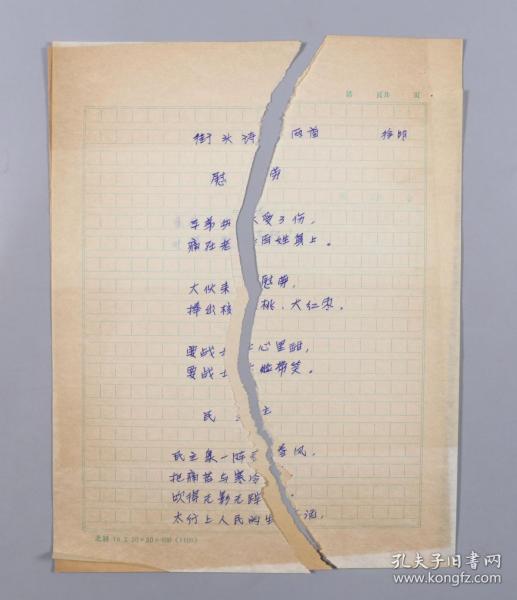 第 页共 页
街头诗 两首 徐明
慰 劳
子弟兵 受了伤，
痛在老 百姓身上。
大伙来 慰劳，
捧出核 桃、大红枣。
要战士 心里甜，
要战士 脸带笑。
民 主
民主象一阵 春风，
把痛苦与寒冷
吹得无影无踪
太行上人民的生 活，
孔夫子旧书网
www.kongfz.com